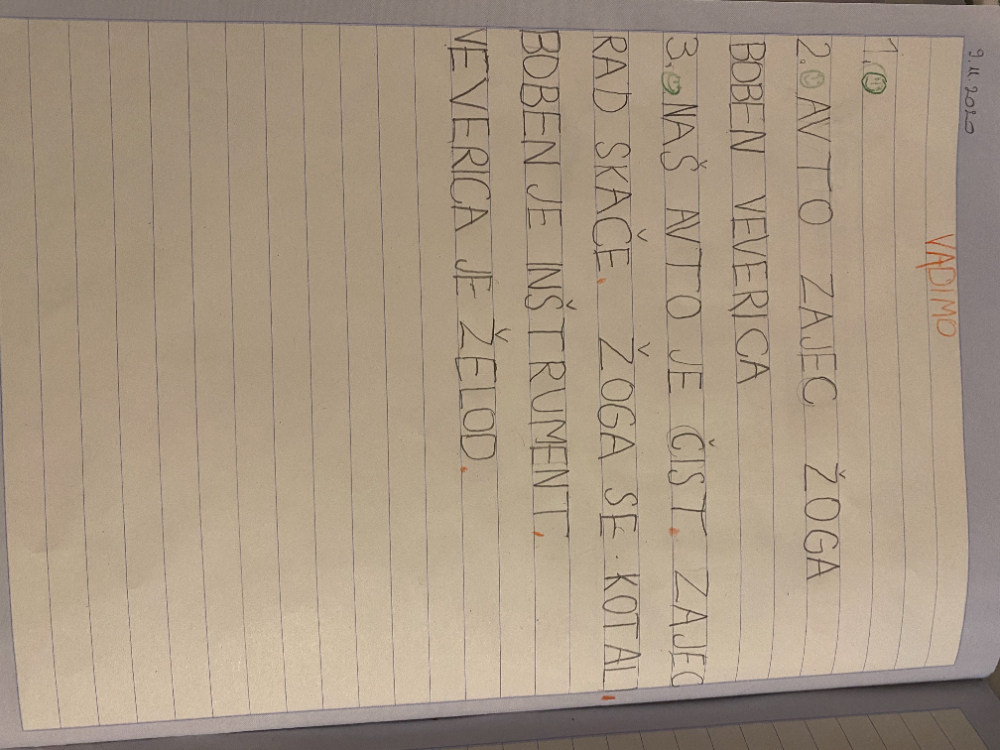 9. 11. 2020
VADIMO
1.
2. AVTO ZAJEC ŽOGA
BOBEN VEVERICA
3. NAŠ AVTO JE ČIST. ZAJEC
RAD SKAČE. ŽOGA SE KOTALI.
BOBEN JE INŠTRUMENT.
VEVERICA JE ŽELOD.